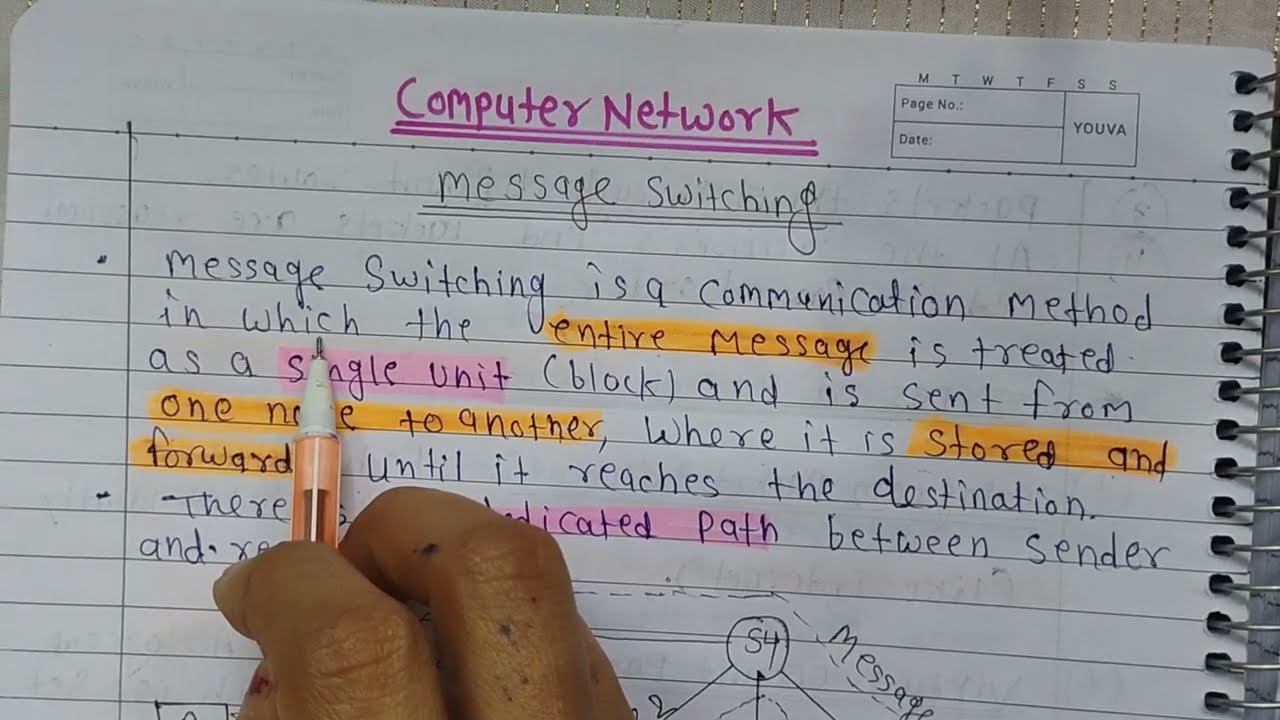 Computer Network
M T W T F S S
Page No.:
Date:
YOUVA
Message Switching
Message Switching is a Communication Method
in which the entire Message is treated.
as a single unit (block) and is sent from
one to another, Where it is Stored and
forward until it reaches the destination.
There Path between Sender
and
S4
Message
2